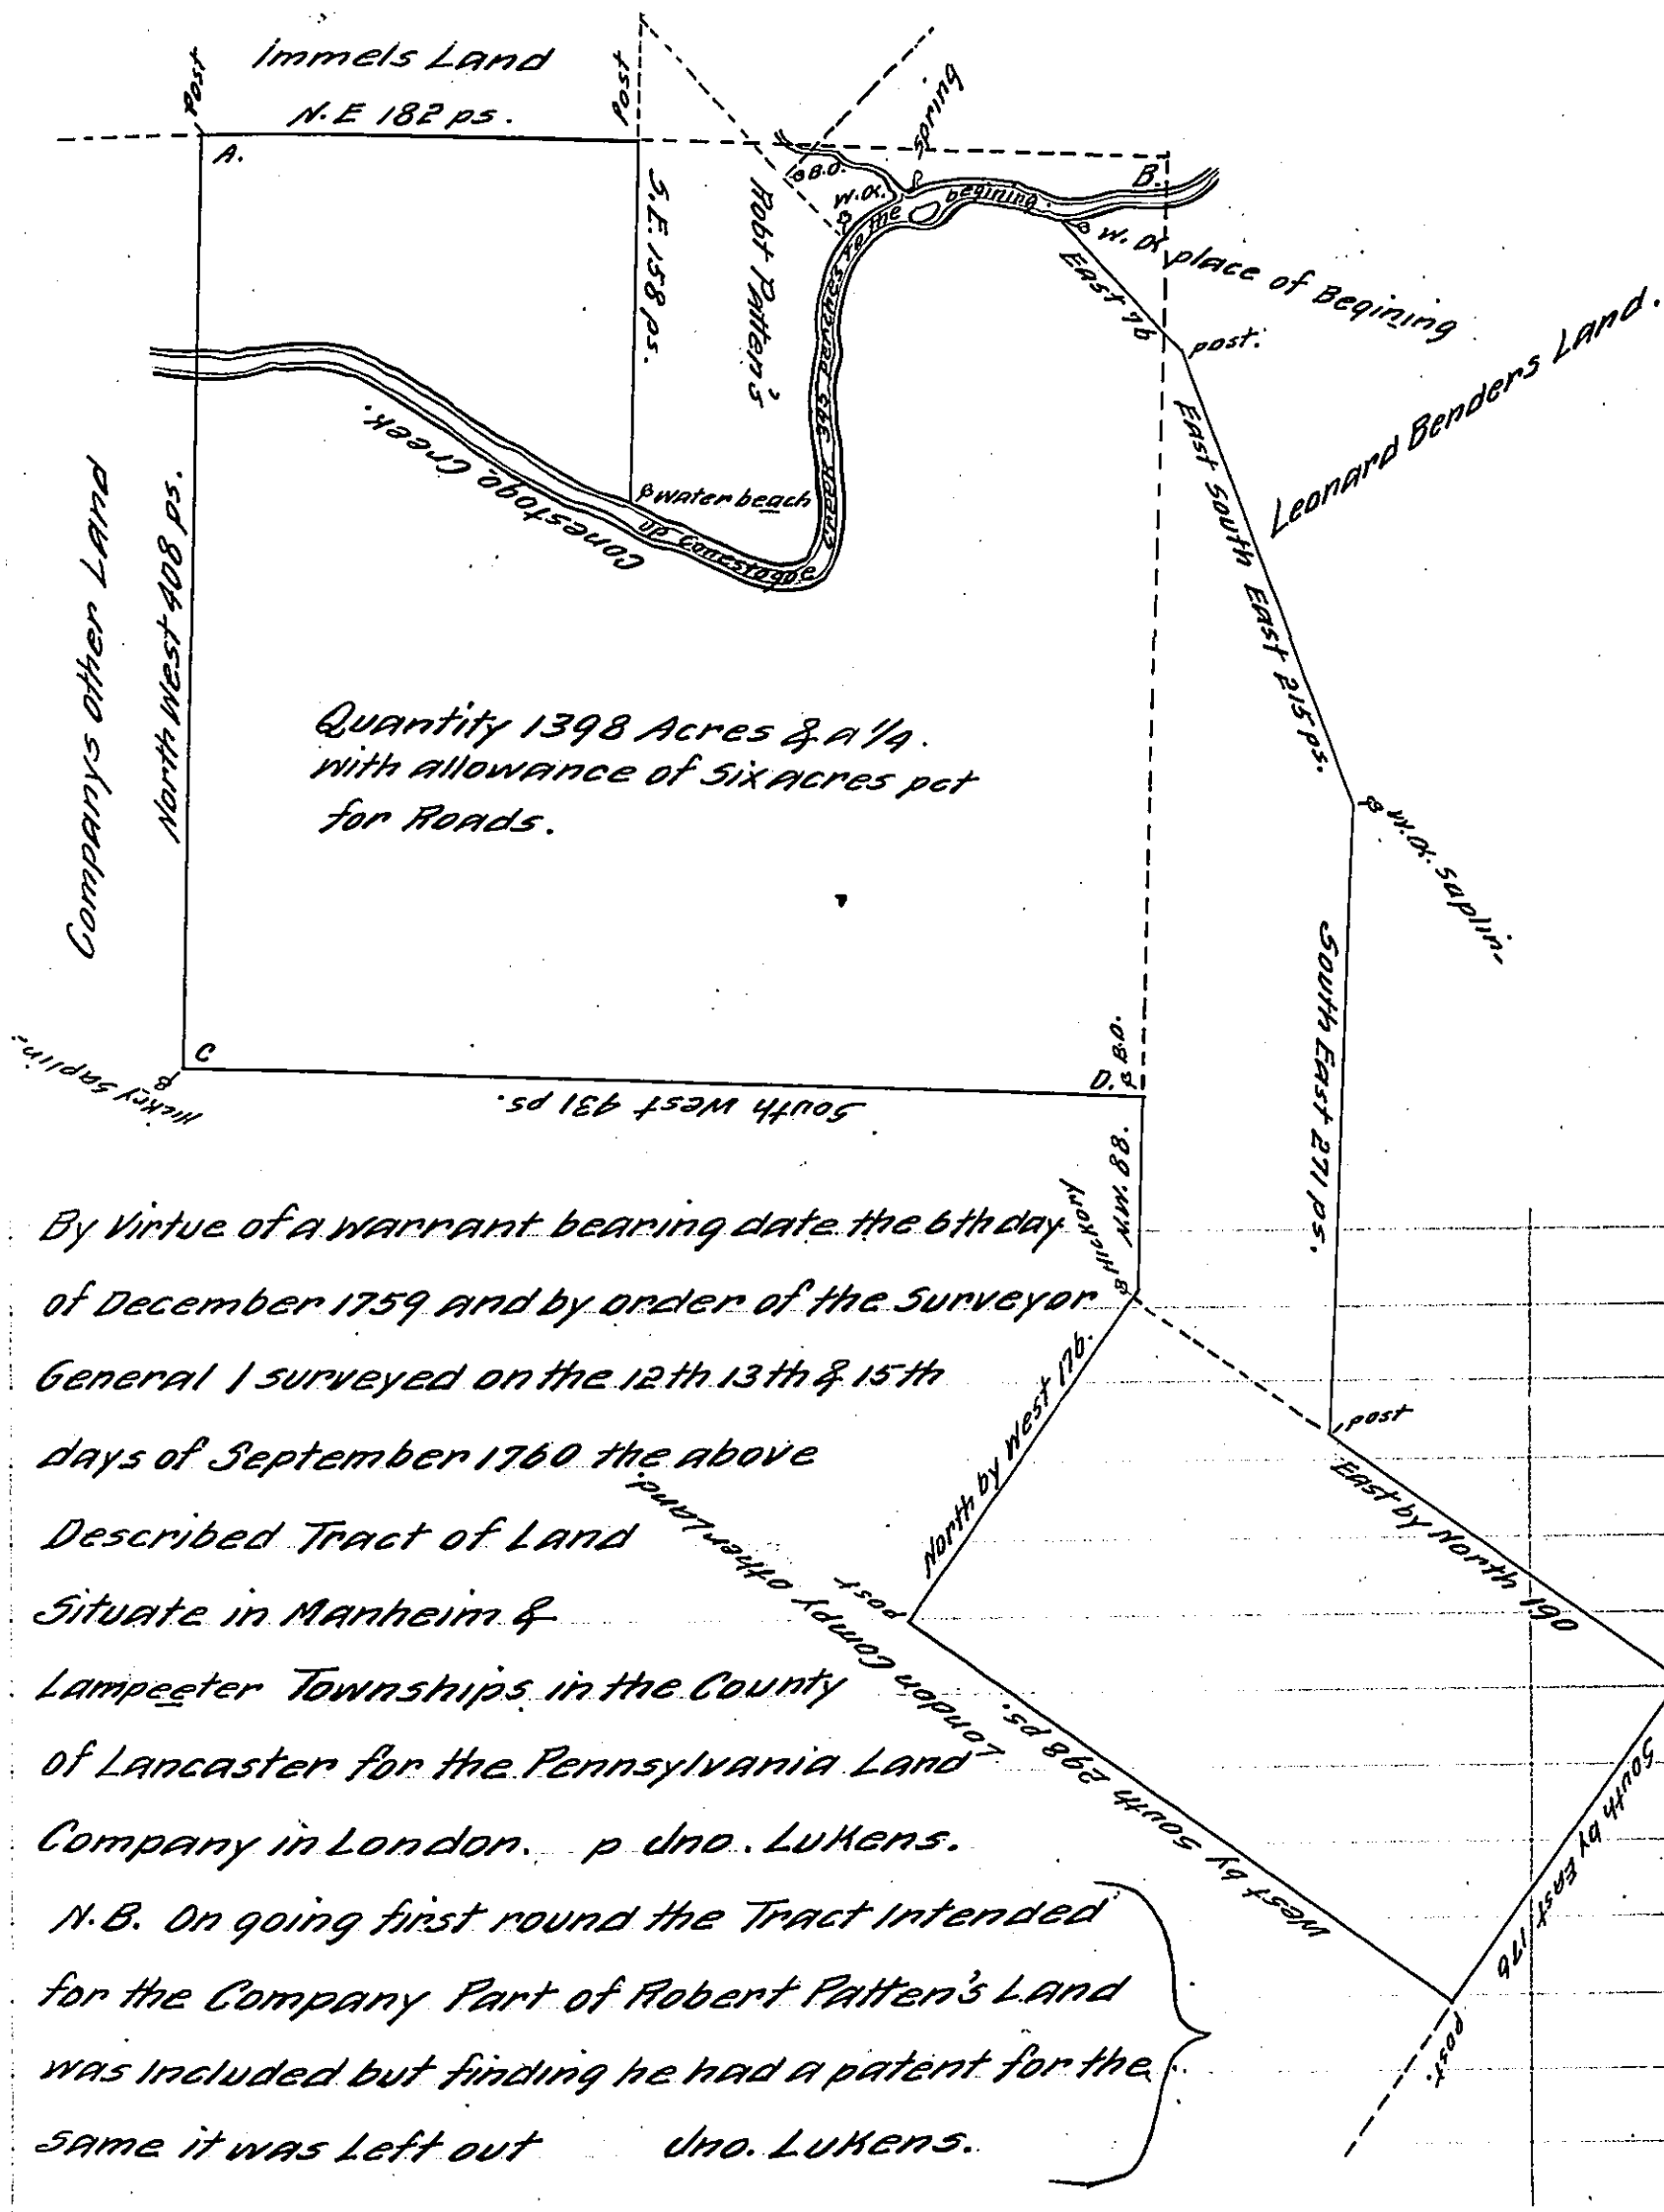 Immels Land
Post
N.E 182 ps.
Post
A.
S.E. 158 ps.
Robt Patten's
B.O.
W.O.
Spring
B.
W. O. place of Begining
East 76
post.
Leonard Benders Land.
East South East 215 ps.
W.O. Saplin.
South East 271 ps.
Conestogo Creek.
water beach
up Conestogoe Creek 395 Parches to the begining.
Companys other Land
North West 408 ps.
Quantity 1398 Acres & a 1/4.
with allowance of Six acres pct
for Roads.
C
Hickry Saplin.
South West 431 ps.
D.
B.O.
N.W. 88.
Hickory
North by West 176.
post
East by North 190
South by East 176
post.
West by South 298 ps.
post
London Compy other Land.
By Virtue of a warrant bearing date the 6th day
of December 1759 and by order of the Surveyor
General I surveyed on the 12th 13th & 15th
days of September 1760 the above
Described Tract of Land
Situate in Manheim &
Lampeeter Townships in the County
of Lancaster for the Pennsylvania Land
Company in London. p Jno. Lukens.
N.B. On going first round the Tract Intended
for the Company Part of Robert Patten's Land
was Included but finding he had a patent for the
same it was Left out Jno. Lukens.